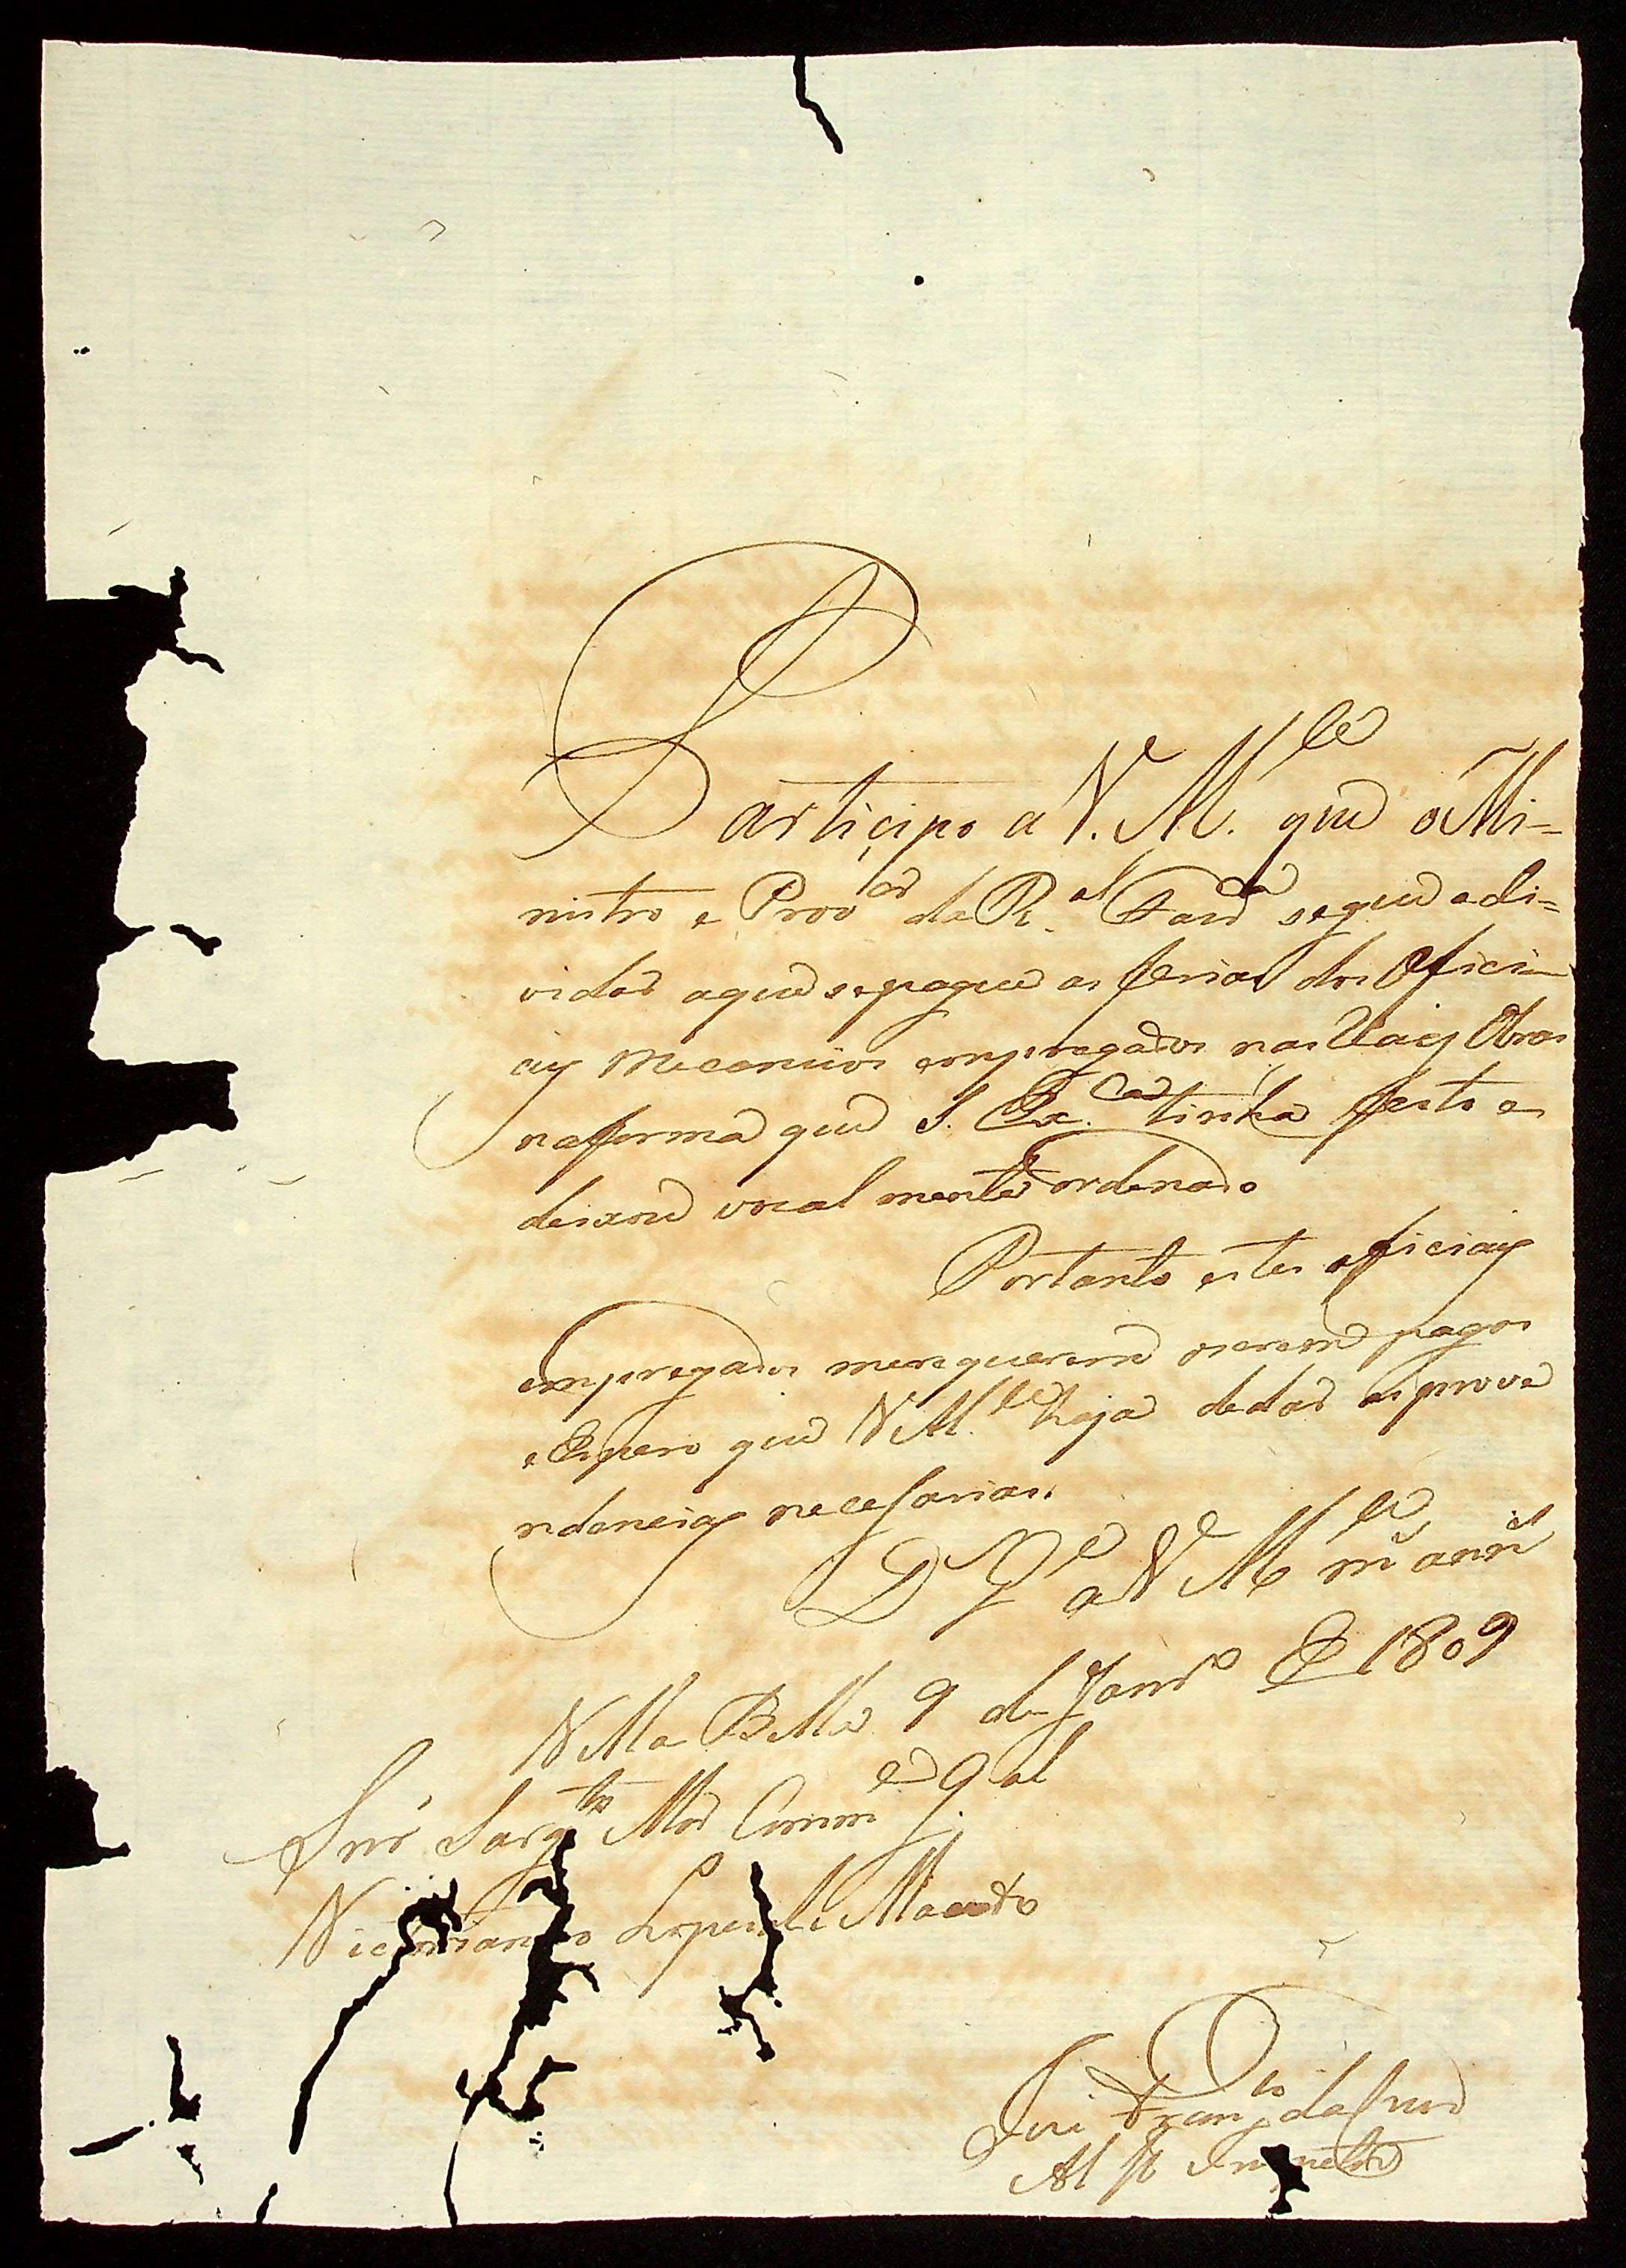 Participo a V. M.ce que o Mi=
nistro e Prov.or da R.al Faz.da segue a di=
vidar a que se pague as ferias dos Offici
ays Mecanicos empregados nas Reaes Obras
na forma que S. Ex.cia tinha feito e
deixou vocal mente ordenado
Portanto estes officiays
empregados me requererem o serem pagos
e Espero que V M.ce haja de dar as prove
ndencias necessarias.
D G.e a V M.ce m.s ann.s
Villa Bella 9 de Janr.o de 1809
Snr. Sarg.to Mor Comm.e G.al
Victoriano Lopes de Macedo
José Franc.o da Cruz